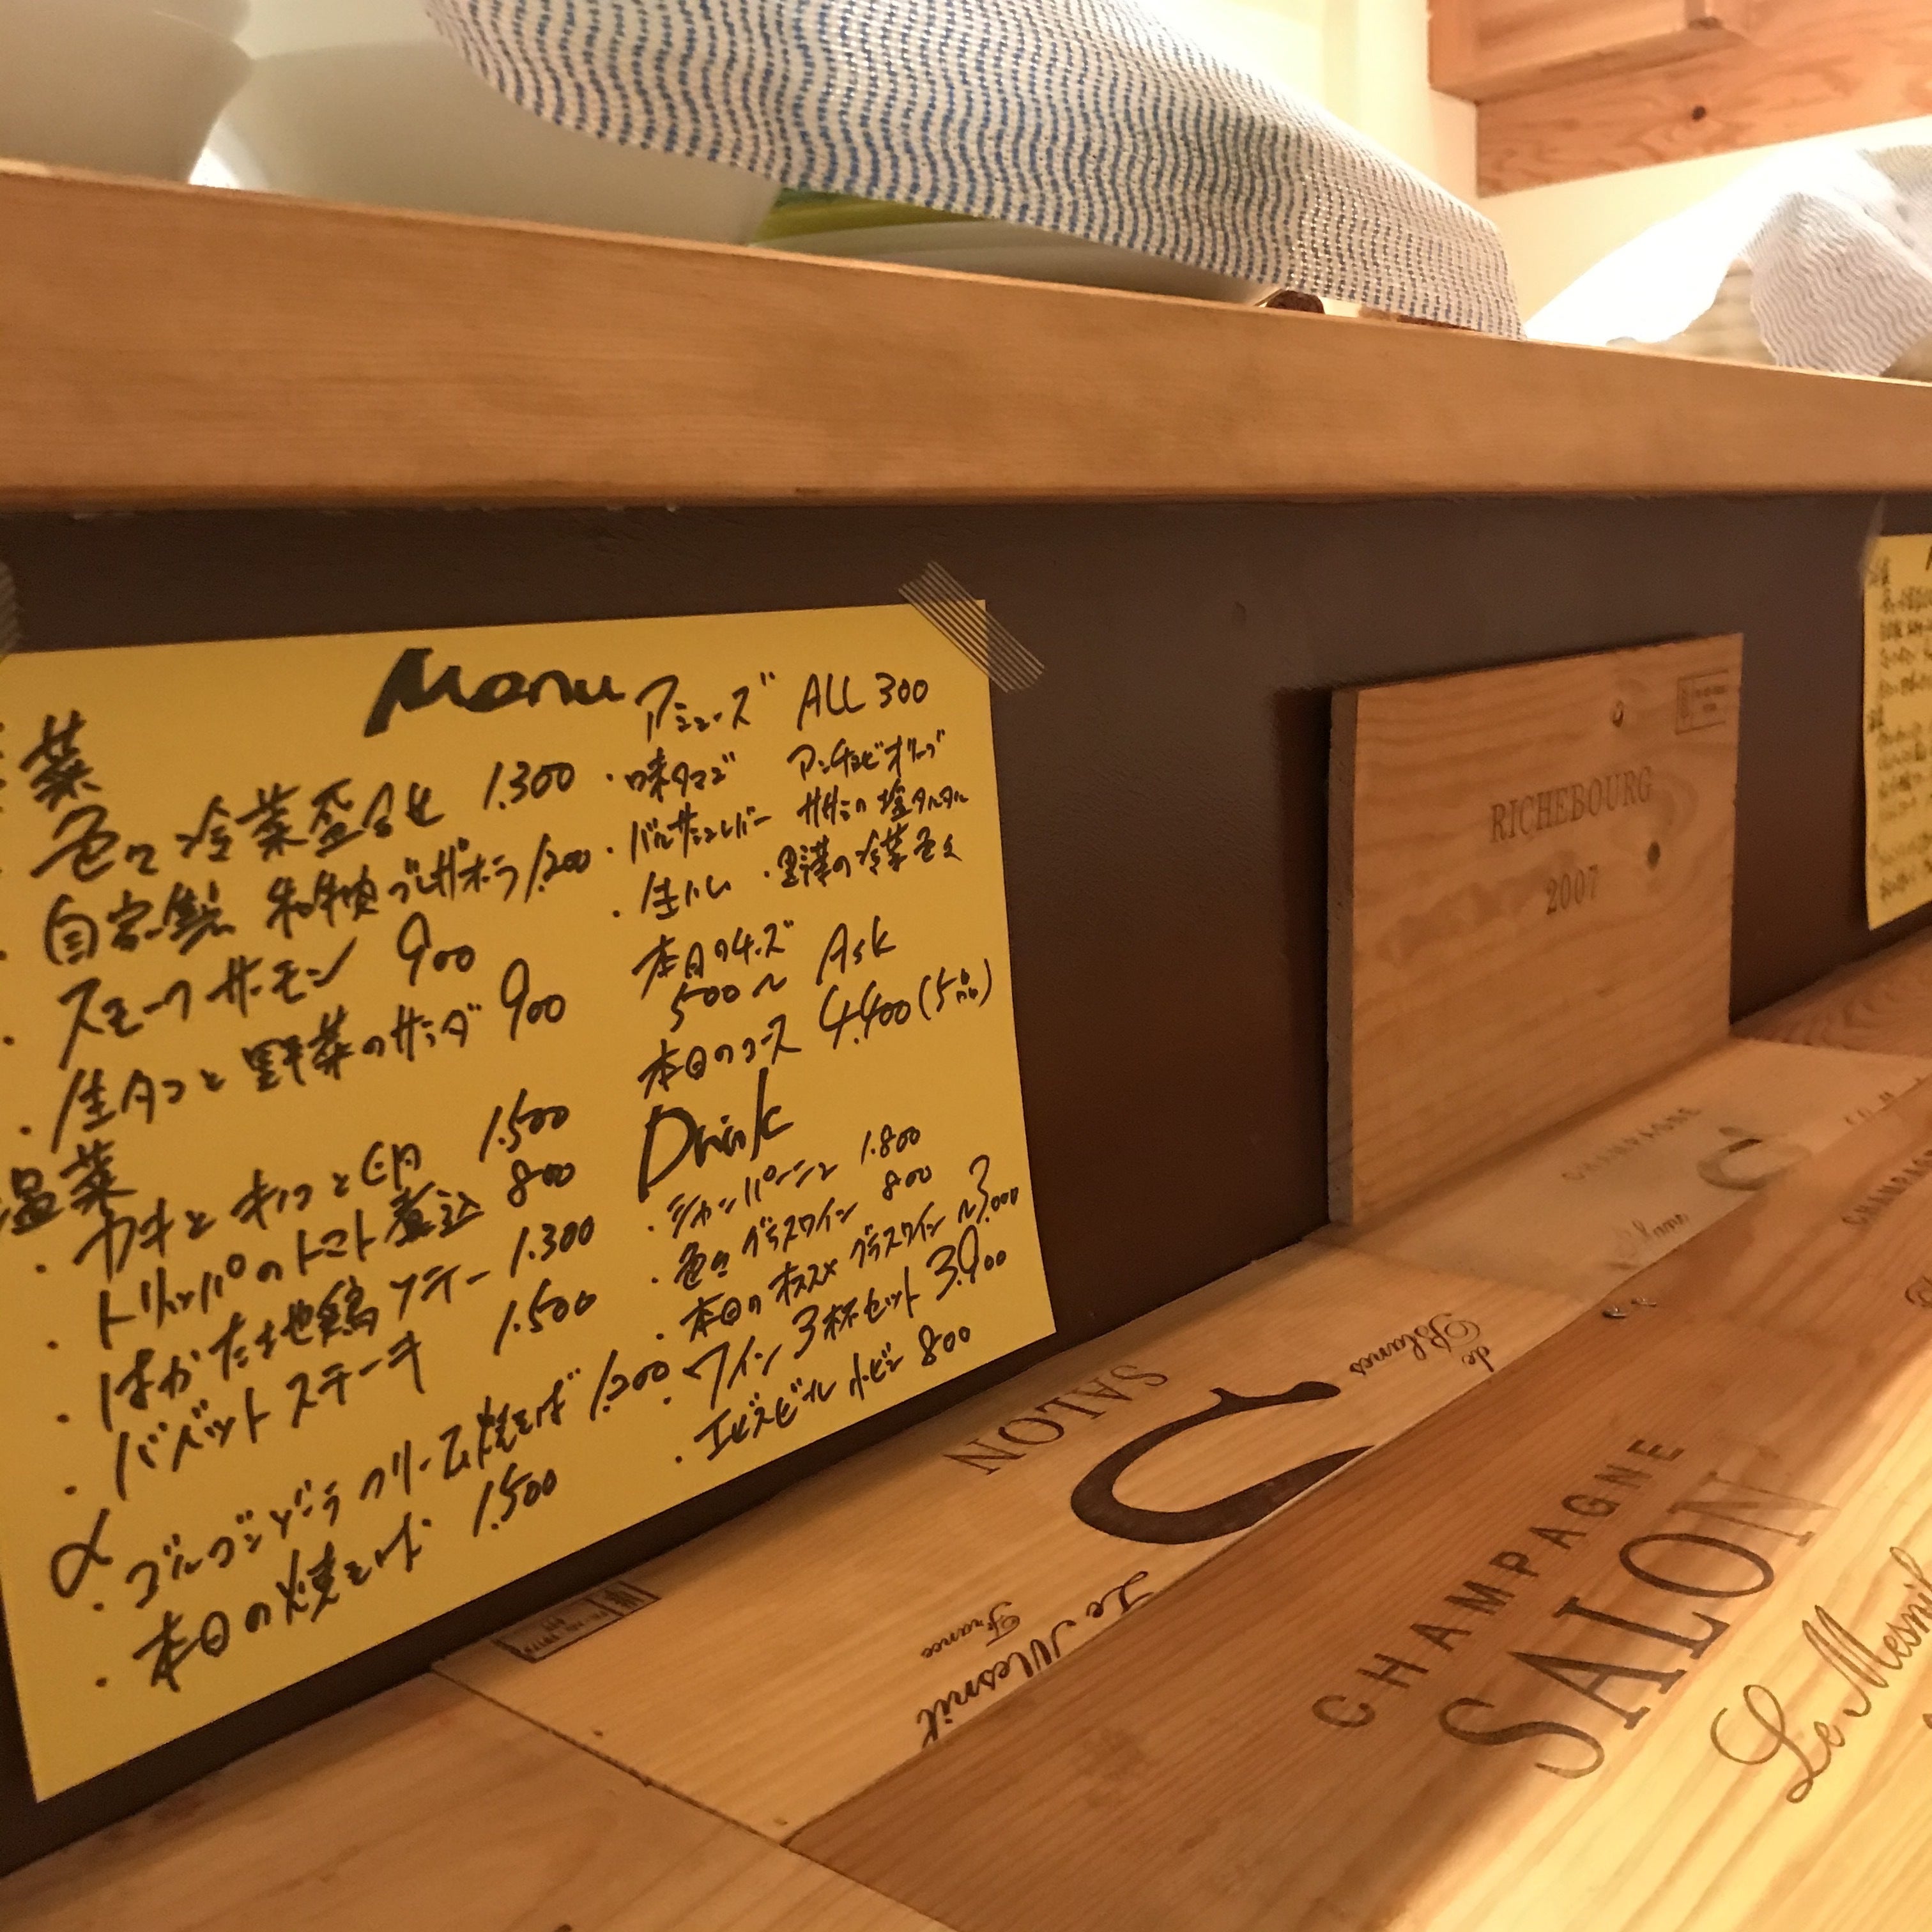 Menu
菜
色々冷菜盛合せ 1.300
・自家製 和牛モモ肉ブレザオラ 1.200
・スモークサーモン 900
・生タコと野菜のサラダ 900
温菜
・カキとキノコと卵 1.500
・トリッパのトマト煮込 800
・はかた地鶏ソテー 1.300
・バベットステーキ 1.500
〆
・ゴルゴンゾーラクリーム焼そば 1.200
・本日の焼そば 1.500
アミューズ ALL 300
・味タマゴ アンチョビオリーブ
・バルサミコレバー ササミの塩タルタル
・生ハム ・野菜の冷菜色々
本日のチーズ
500〜 Ask
本日のコース 4.400(5品)
Drink
・シャンパーニュ 1.800
・色々グラスワイン 800
・本日のオススメグラスワイン 〜3.000
・ワイン3杯セット 3.900
・エビスビール 小ビン 800
RICHEBOURG
2007
CHAMPAGNE
CHAMPAGNE
de
Blancs
SALON
Le Mesnil
France
CHAMPAGNE
SALON
Le Mesnil